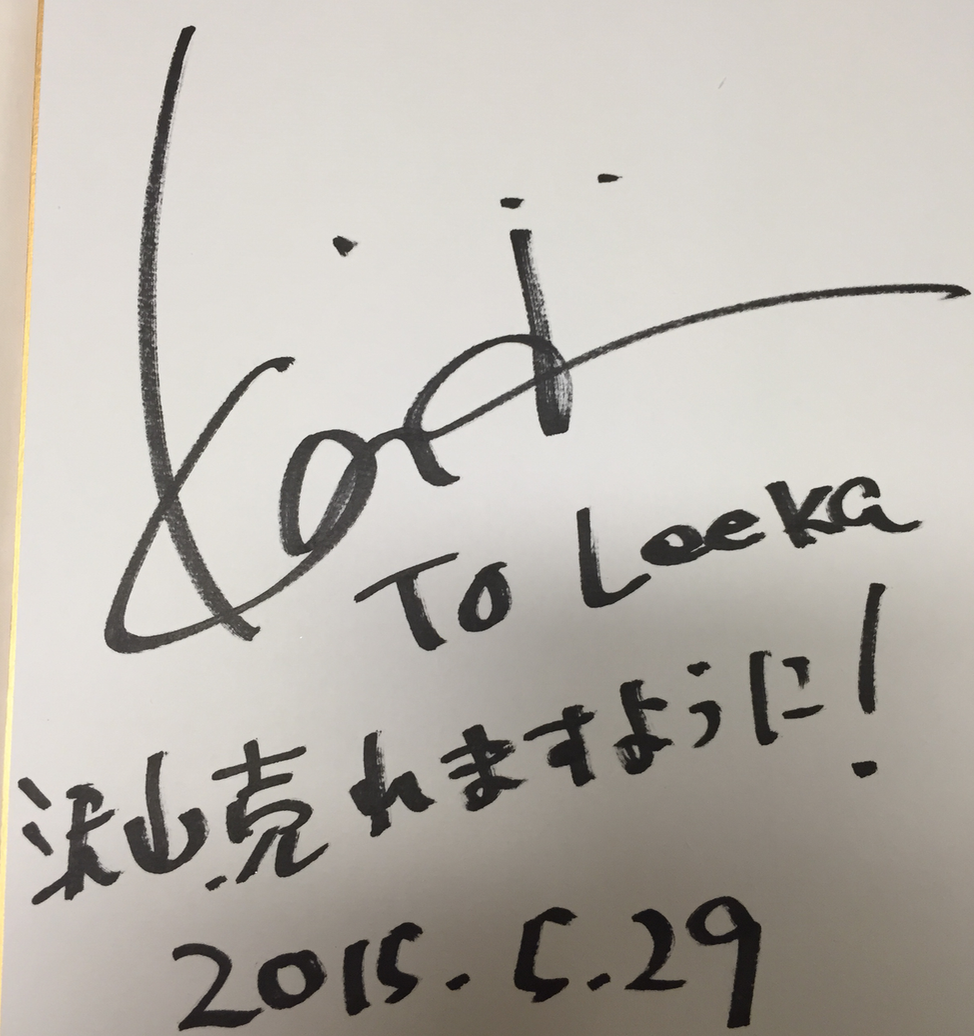 Koji
To Leeka
沢山売れますように!
2015.5.29